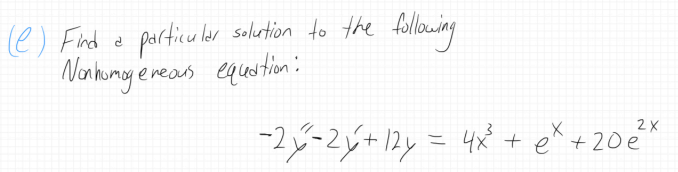 (e) Find a particular solution to the following
Nonhomogeneous equation:
-2y''-2y'+12y = 4x³ + eˣ + 20e²ˣ